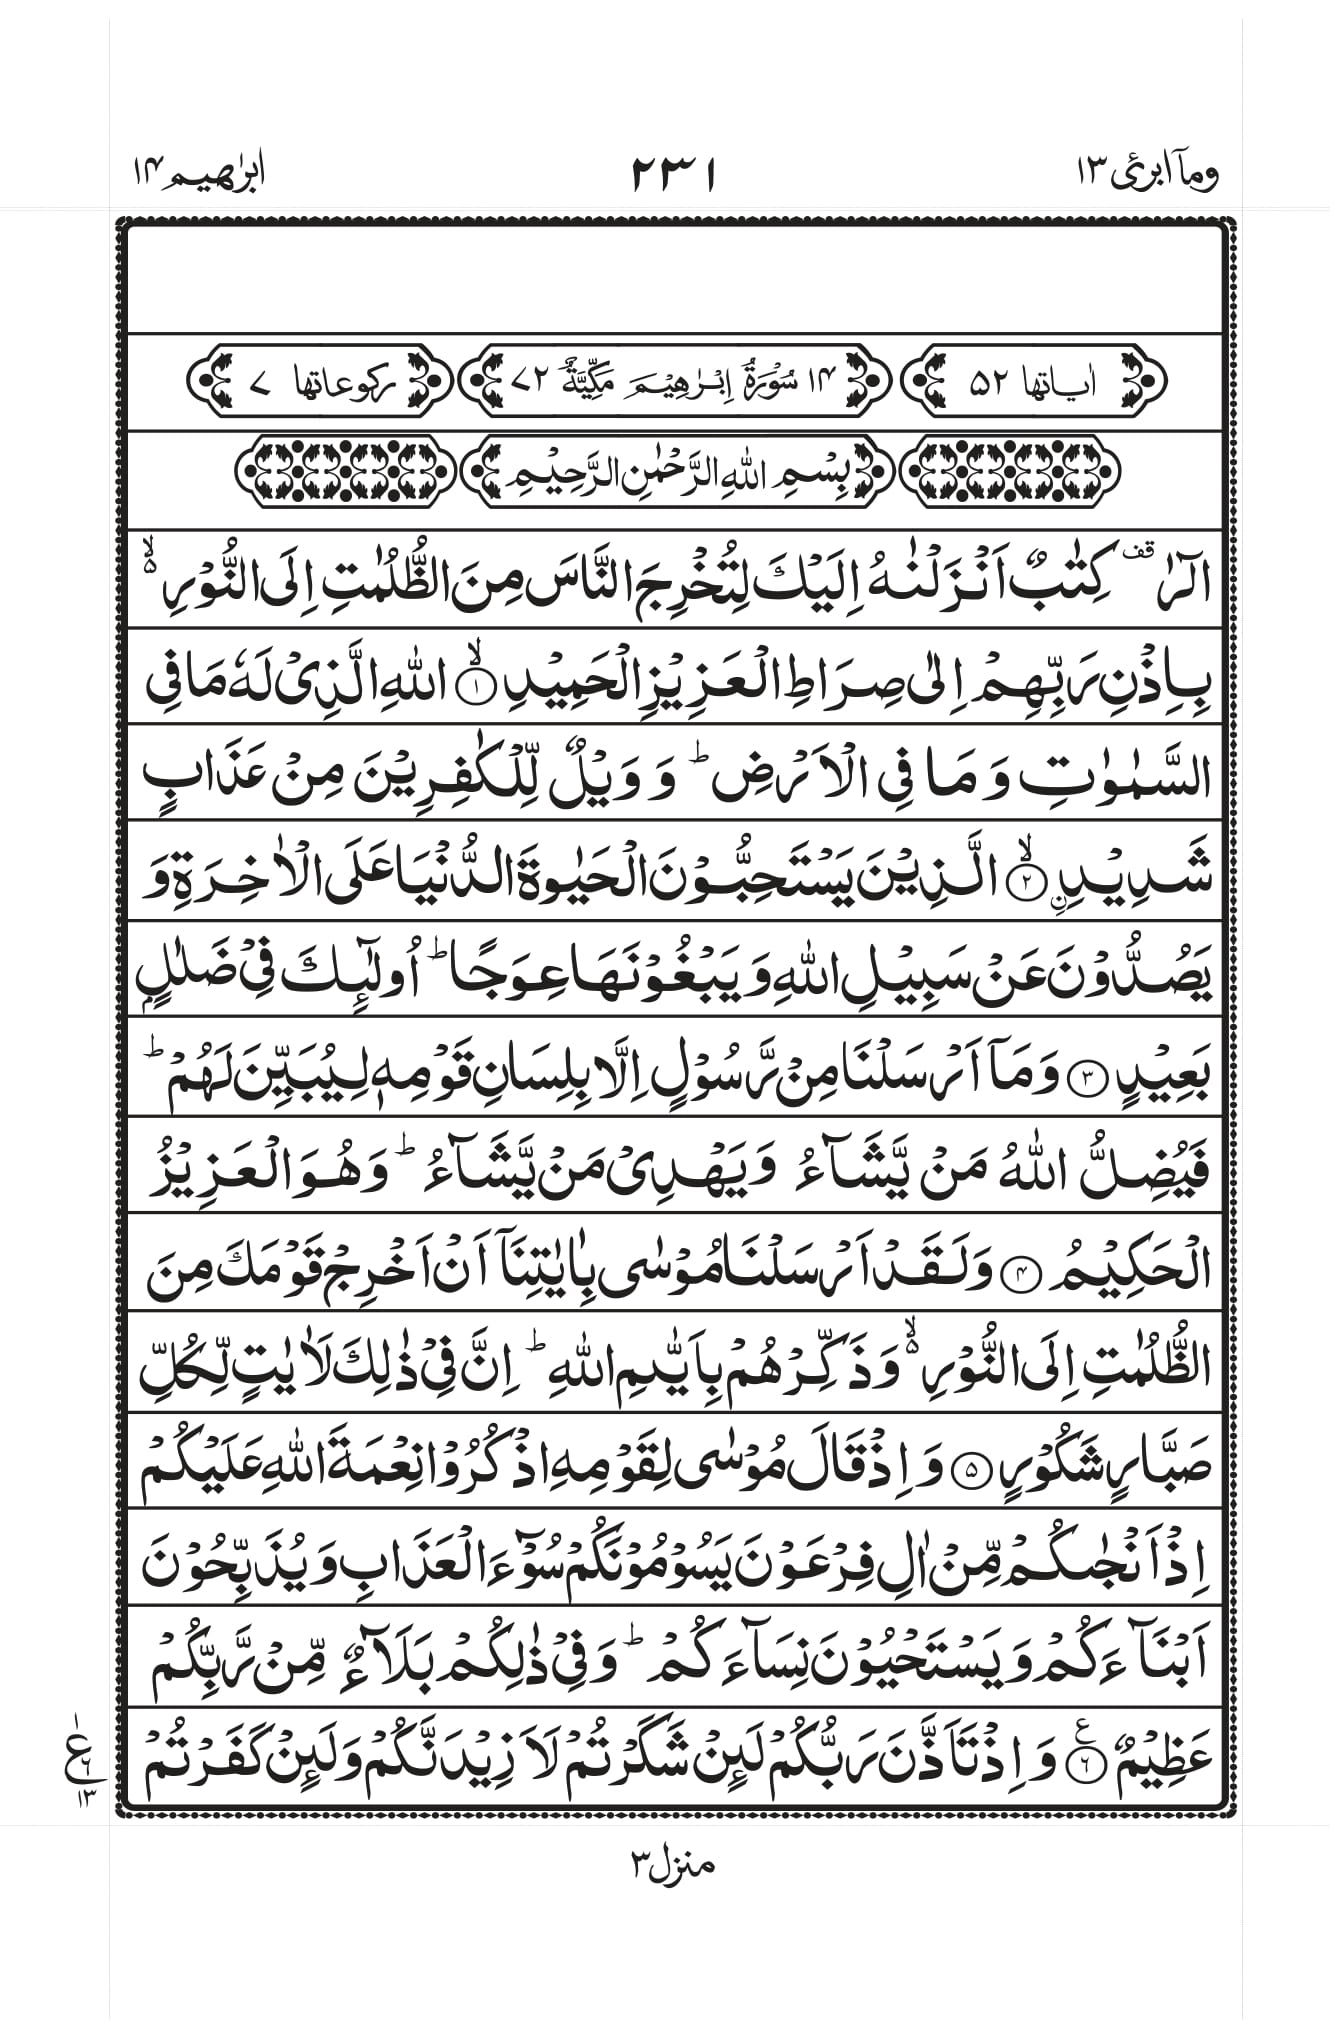 وماۤابرئ ١٣
٢٣١
ابرٰهيم ١٤
اٰياتها ٥٢
١٤ سُوْرَةُ اِبْرٰهِيْمَ مَكِّيَّةٌ ٧٢
ركوعاتها ٧
بِسْمِ اللّٰهِ الرَّحْمٰنِ الرَّحِيْمِ
الٓرٰ ۟قف كِتٰبٌ اَنْزَلْنٰهُ اِلَيْكَ لِتُخْرِجَ النَّاسَ مِنَ الظُّلُمٰتِ اِلَى النُّوْرِ ۙ۬
بِاِذْنِ رَبِّهِمْ اِلٰى صِرَاطِ الْعَزِيْزِ الْحَمِيْدِ ۙ‏﴿١﴾ اللّٰهِ الَّذِىْ لَهٗ مَا فِى
السَّمٰوٰتِ وَمَا فِى الْاَرْضِ ؕ وَوَيْلٌ لِّلْكٰفِرِيْنَ مِنْ عَذَابٍ
شَدِيْدِ ۙ‏﴿٢﴾ ۟نِ الَّذِيْنَ يَسْتَحِبُّوْنَ الْحَيٰوةَ الدُّنْيَا عَلَى الْاٰخِرَةِ وَ
يَصُدُّوْنَ عَنْ سَبِيْلِ اللّٰهِ وَيَبْغُوْنَهَا عِوَجًا ؕ اُولٰٓئِكَ فِىْ ضَلٰلٍۢ
بَعِيْدٍ ﴿٣﴾ وَمَاۤ اَرْسَلْنَا مِنْ رَّسُوْلٍ اِلَّا بِلِسَانِ قَوْمِهٖ لِيُبَيِّنَ لَهُمْ ؕ
فَيُضِلُّ اللّٰهُ مَنْ يَّشَآءُ وَيَهْدِىْ مَنْ يَّشَآءُ ؕ وَهُوَ الْعَزِيْزُ
الْحَكِيْمُ ﴿٤﴾ وَلَقَدْ اَرْسَلْنَا مُوْسٰى بِاٰيٰتِنَاۤ اَنْ اَخْرِجْ قَوْمَكَ مِنَ
الظُّلُمٰتِ اِلَى النُّوْرِ ۙ۬ وَذَكِّرْهُمْ بِاَيّٰٮمِ اللّٰهِ ؕ اِنَّ فِىْ ذٰلِكَ لَاٰيٰتٍ لِّكُلِّ
صَبَّارٍ شَكُوْرٍ ﴿٥﴾ وَاِذْ قَالَ مُوْسٰى لِقَوْمِهِ اذْكُرُوْا نِعْمَةَ اللّٰهِ عَلَيْكُمْ
اِذْ اَنْجٰٮكُمْ مِّنْ اٰلِ فِرْعَوْنَ يَسُوْمُوْنَكُمْ سُوْٓءَ الْعَذَابِ وَيُذَبِّحُوْنَ
اَبْنَآءَكُمْ وَيَسْتَحْيُوْنَ نِسَآءَكُمْ ؕ وَفِىْ ذٰلِكُمْ بَلَآءٌ مِّنْ رَّبِّكُمْ
عَظِيْمٌ ﴿٦﴾ ع وَاِذْ تَاَذَّنَ رَبُّكُمْ لَئِنْ شَكَرْتُمْ لَاَزِيْدَنَّكُمْ وَلَئِنْ كَفَرْتُمْ
١
ع
٦
١٣
منزل ٣